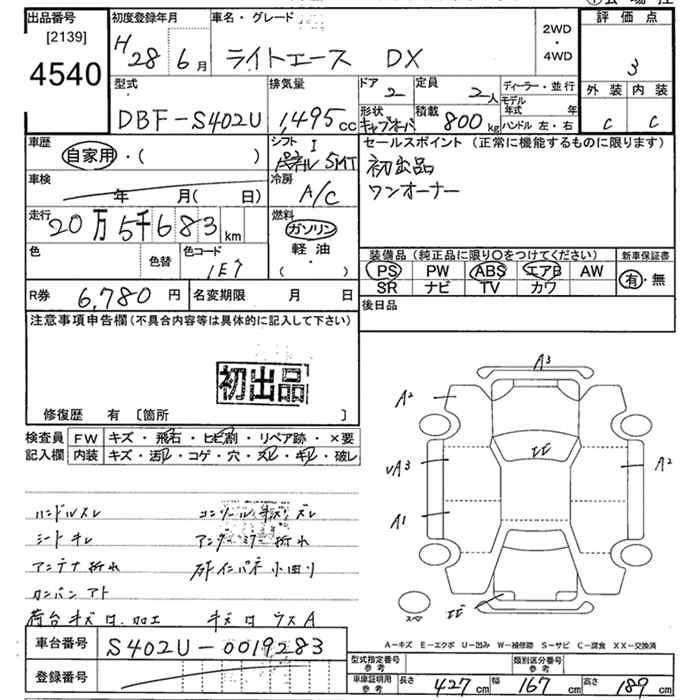 出品番号 初度登録年月 車名・グレード 評価点
[2139]
4540 H28年6月 ライトエース DX 2WD・4WD 3
外装 内装
C C
型式 排気量 ドア 定員 ディーラー・並行
DBF-S402U 1,495cc 2 2人 モデル年式 年
形状 積載 ハンドル 左・右
キャブオーバ 800kg
車歴 シフト セールスポイント (正常に機能するものに限ります)
自家用・( ) I パネル 5MT 初出品
車検 冷房 ワンオーナー
年 月( 日) A/C
走行 燃料
20万5千683km ガソリン
軽油
・( )
色 色替 色コード
1E7
装備品(純正品に限り〇をつけてください) 新車保証書
PS PW ABS エアB AW 有・無
SR ナビ TV カワ
R券 6,780円 名変期限 月 日
後日品
注意事項申告欄(不具合内容等は具体的に記入して下さい)
初出品
修復歴 有 [箇所 ]
検査員 FW キズ・飛石・ヒビ割・リペア跡・×要
記入欄 内装 キズ・汚れ・コゲ・穴・スレ・キレ・破レ
ハンドルスレ コンソールキズ、スレ
シートキレ アンダーミラー折れ
アンテナ折れ
カンバンアト
荷台キズ
A3
A2
A2
A1
スペア
A-キズ E-エクボ U-凹み W-補修跡 S-サビ C-腐食 XX-交換済
車台番号 S402U-0019283
型式指定番号 参考 類別区分番号 参考
登録番号
車庫証明用 参考 長さ 427cm 幅 167cm 高さ 189cm